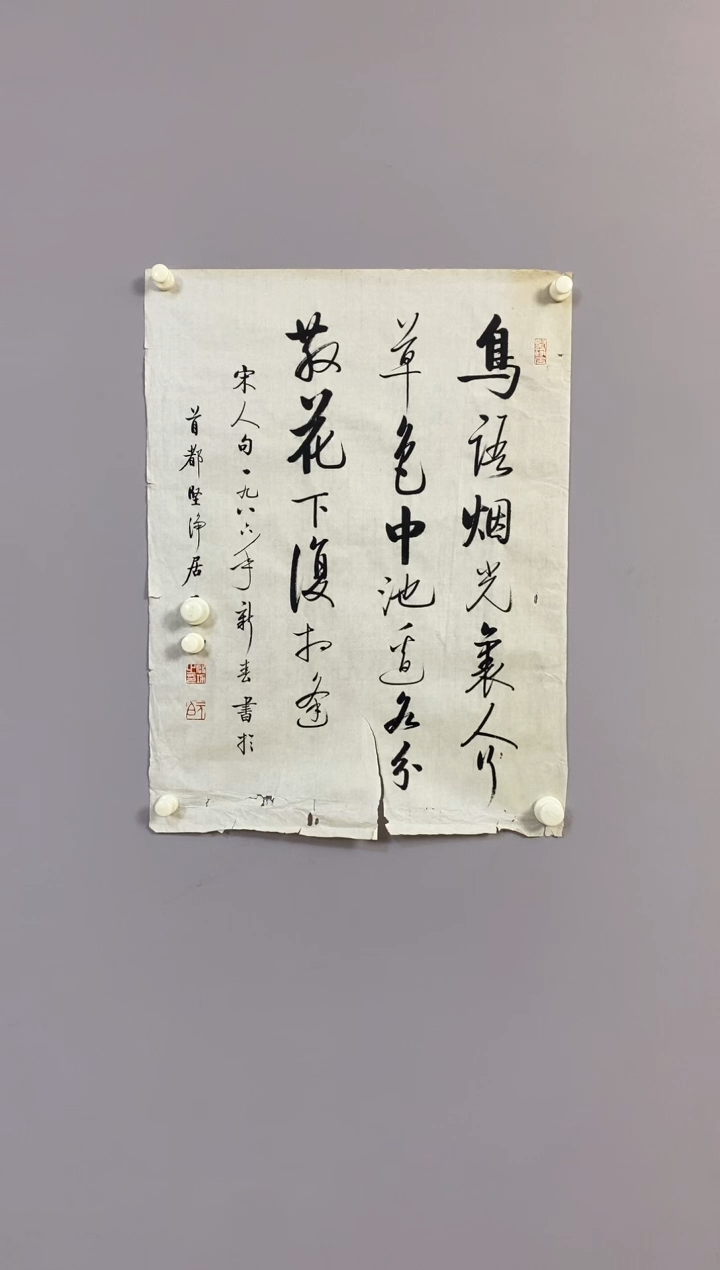 鳥語烟光裏人行
草色中池邊各分
散花下復相逢
宋人句一九八六年新春書於
首都堅淨居
元白